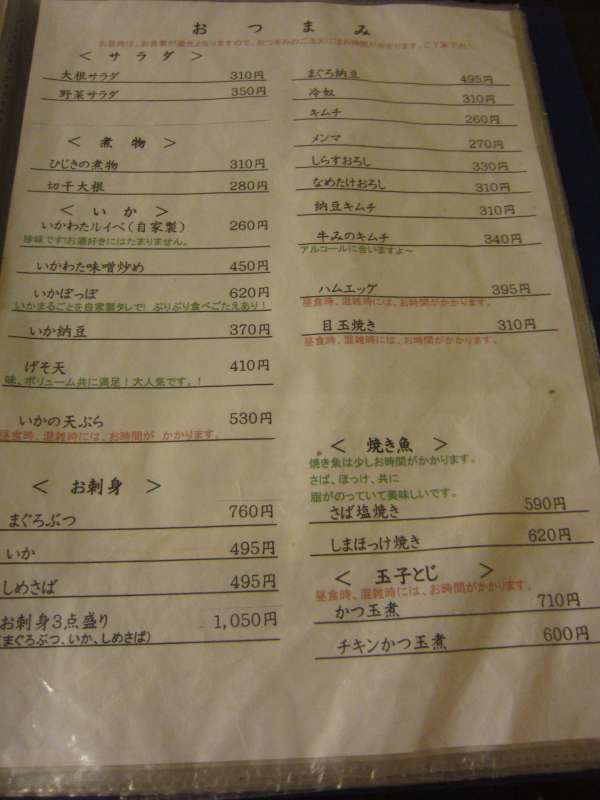 おつまみ
お昼時は、お食事が優先となりますので、おつまみのご注文にはお時間がかかります。ご了承下さい
＜ サラダ ＞
大根サラダ 310円
野菜サラダ 350円
＜ 煮物 ＞
ひじきの煮物 310円
切干大根 280円
＜ いか ＞
いかわたルイベ(自家製) 260円
珍味です!お酒好きにはたまりません。
いかわた味噌炒め 450円
いかぽっぽ 620円
いかまるごとを自家製タレで! ぷりぷり食べごたえあり!
いか納豆 370円
げそ天 410円
味、ボリューム共に満足!大人気です。!
いかの天ぷら 530円
昼食時、混雑時には、お時間が かかります。
＜ お刺身 ＞
まぐろぶつ 760円
いか 495円
しめさば 495円
お刺身3点盛り 1,050円
(まぐろぶつ、いか、しめさば)
まぐろ納豆 495円
冷奴 310円
キムチ 260円
メンマ 270円
しらすおろし 330円
なめたけおろし 310円
納豆キムチ 310円
牛みのキムチ 340円
アルコールに合いますよ〜
ハムエッグ 395円
昼食時、混雑時には、お時間がかかります。
目玉焼き 310円
昼食時、混雑時には、お時間がかかります。
＜ 焼き魚 ＞
焼き魚は少しお時間がかかります。
さば、ほっけ、共に
脂がのっていて美味しいです。
さば塩焼き 590円
しまほっけ焼き 620円
＜ 玉子とじ ＞
昼食時、混雑時には、お時間がかかります。
かつ玉煮 710円
チキンかつ玉煮 600円